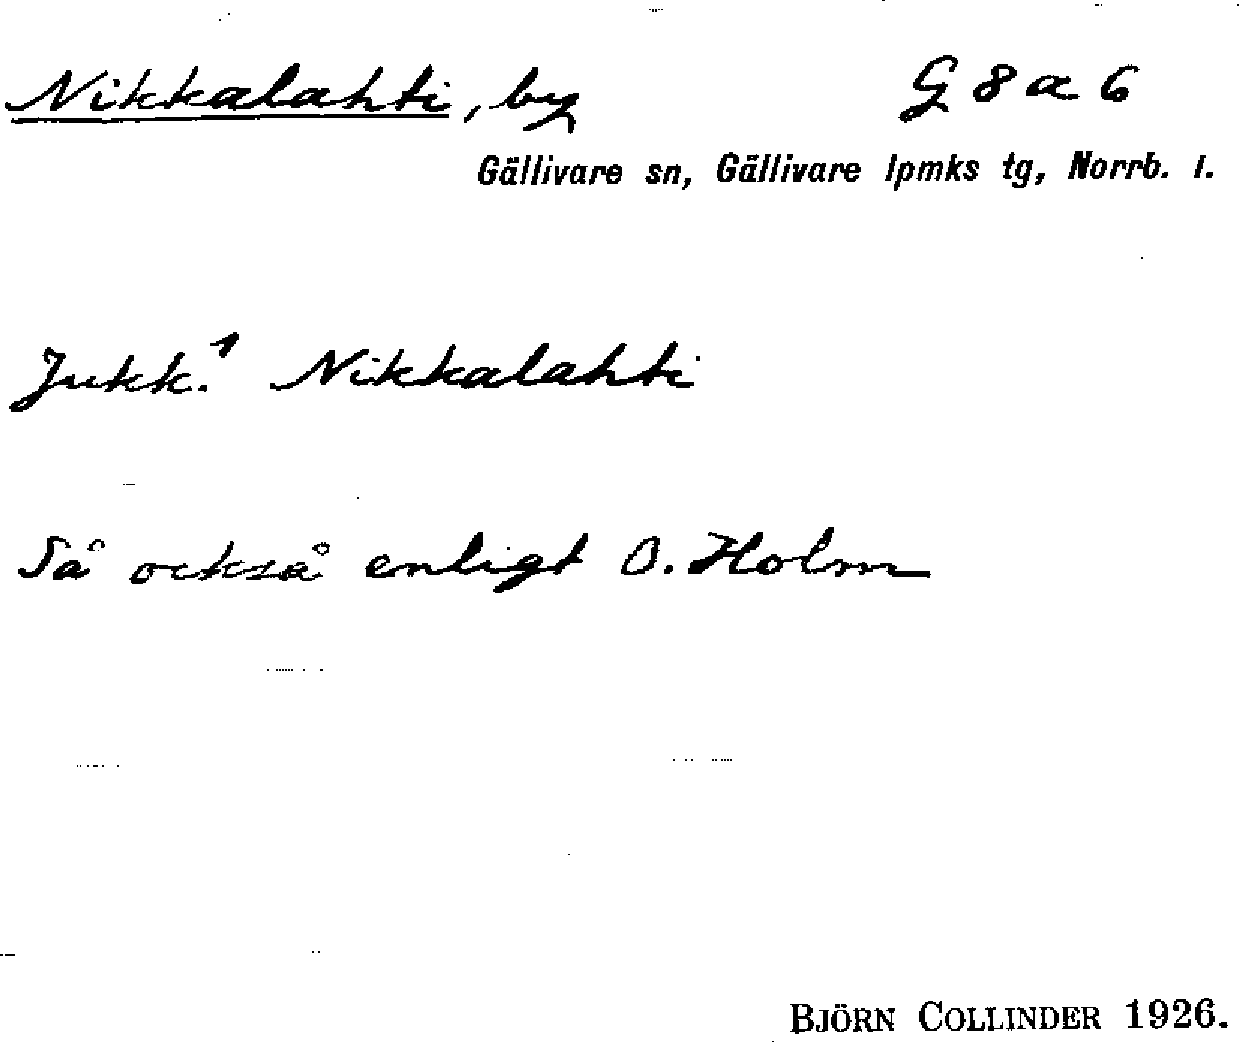 Nikkalahti, by G 8 a 6
Gällivare sn, Gällivare lpmks tg, Norrb. l.
Jukk.¹ Nikkalahti
Så också enligt O. Holm
BJÖRN COLLINDER 1926.